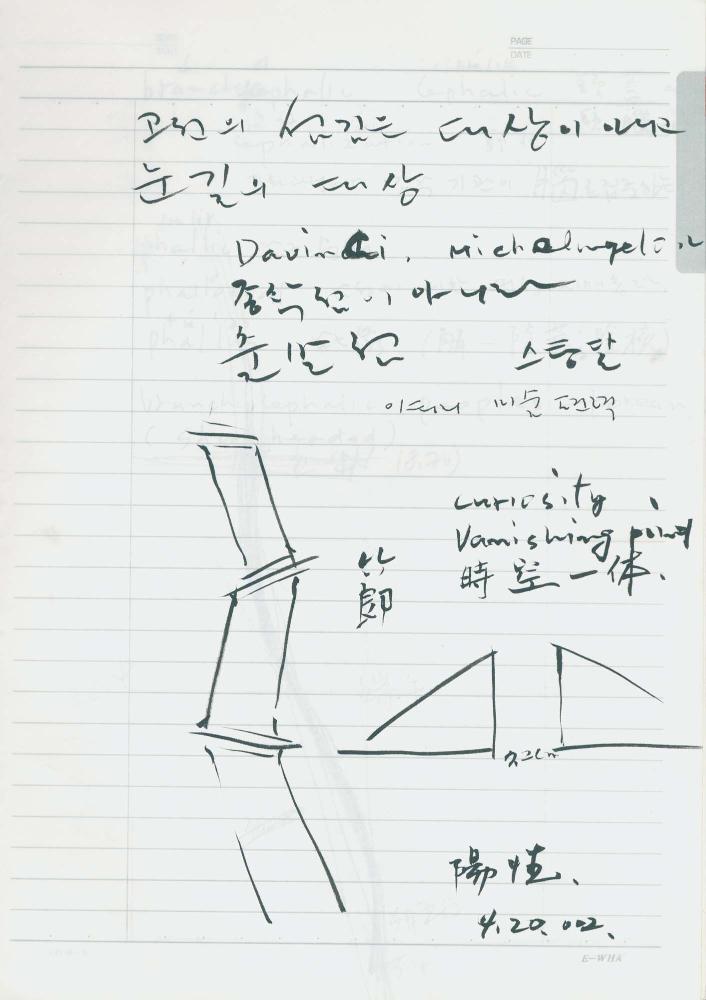 PAGE
DATE
고전의 섬김은 대상이 아니고
눈길의 대상
Davinci, Michelangelo
종착점이 아니라
출발점 스탕달
이태리 미술 편력
curiosity
Vanishing point
時空一体.
節
陽性.
4.20.02.
E-WHA